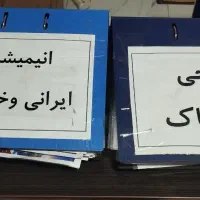 انیمیش
ایرانی وخ
حی
اک